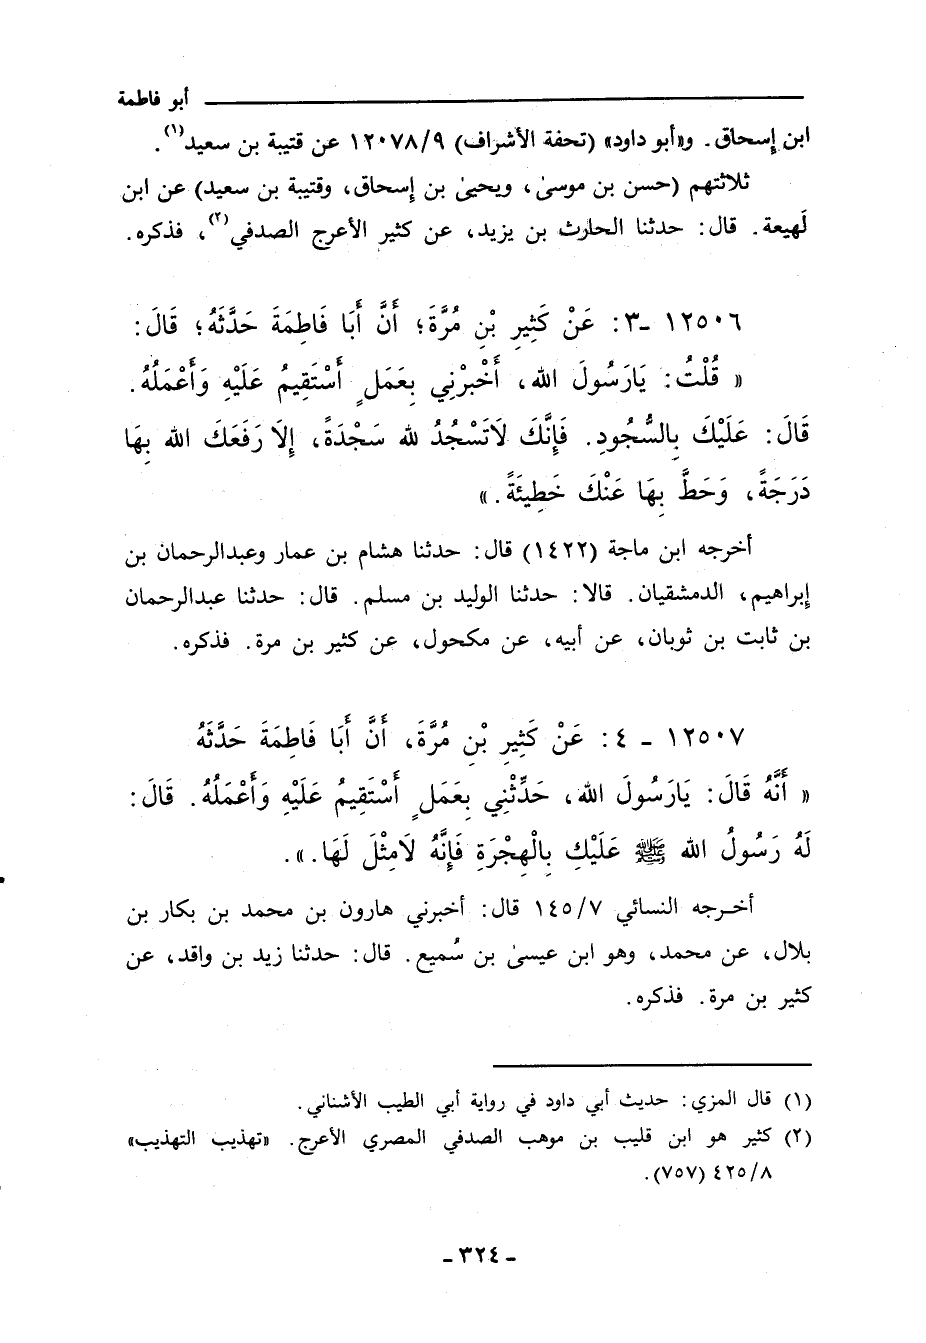 أبو فاطمة
ابن إسحاق. و«أبو داود» (تحفة الأشراف) ١٢٠٧٨/٩ عن قتيبة بن سعيد(١).
ثلاثتهم (حسن بن موسىٰ، ويحيىٰ بن إسحاق، وقتيبة بن سعيد) عن ابن
لَهيعة. قال: حدثنا الحارث بن يزيد، عن كثير الأعرج الصدفي(٢)، فذكره.
١٢٥٠٦ -٣: عَنْ كَثِيرِ بْنِ مُرَّةَ؛ أَنَّ أَبَا فَاطِمَةَ حَدَّثَهُ؛ قَالَ:
« قُلْتُ: يَارَسُولَ الله، أَخْبِرْنِي بِعَمَلٍ أَسْتَقِيمُ عَلَيْهِ وَأَعْمَلُهُ.
قَالَ: عَلَيْكَ بِالسُّجُودِ. فَإِنَّكَ لَاتَسْجُدُ لله سَجْدَةً، إِلَا رَفَعَكَ الله بِهَا
دَرَجَةً، وَحَطَّ بِهَا عَنْكَ خَطِيئَةً.»
أخرجه ابن ماجة (١٤٢٢) قال: حدثنا هشام بن عمار وعبدالرحمان بن
إبراهيم، الدمشقيان. قالا: حدثنا الوليد بن مسلم. قال: حدثنا عبدالرحمان
بن ثابت بن ثوبان، عن أبيه، عن مكحول، عن كثير بن مرة. فذكره.
١٢٥٠٧ - ٤: عَنْ كَثِيرِ بْنِ مُرَّةَ، أَنَّ أَبَا فَاطِمَةَ حَدَّثَهُ
« أَنَّهُ قَالَ: يَارَسُولَ الله، حَدِّثْنِي بِعَمَلٍ أَسْتَقِيمُ عَلَيْهِ وَأَعْمَلُهُ. قَالَ:
لَهُ رَسُولُ الله ﷺ عَلَيْكِ بِالْهِجْرَةِ فَإِنَّهُ لَامِثْلَ لَهَا.».
أخـرجه النسائي ١٤٥/٧ قال: أخبرني هارون بن محمد بن بكار بن
بلال، عن محمد، وهو ابن عيسىٰ بن سُميع. قال: حدثنا زيد بن واقد، عن
كثير بن مرة. فذكره.
(١) قال المزي: حديث أبي داود في رواية أبي الطيب الأشناني.
(٢) كثير هو ابن قليب بن موهب الصدفي المصري الأعرج. «تهذيب التهذيب»
٤٢٥/٨ (٧٥٧).
- ٣٢٤ -